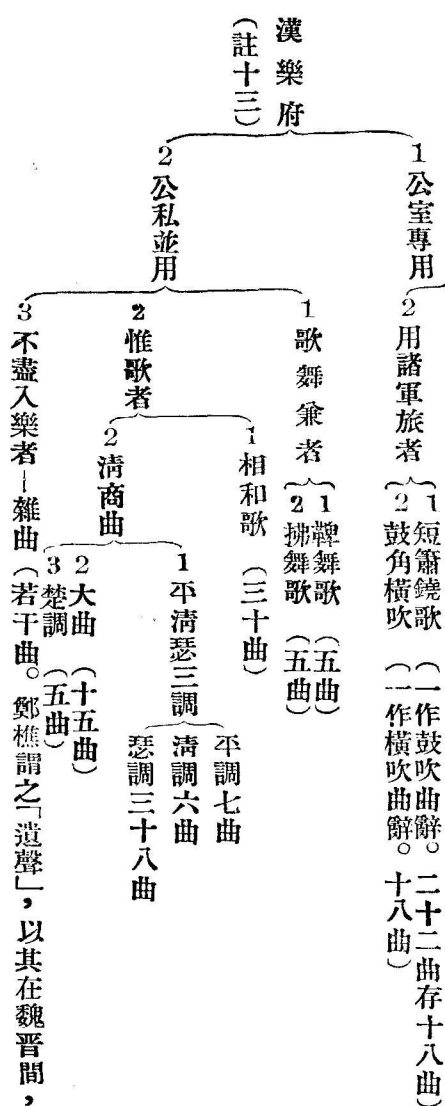 漢樂府
(註十三)
1公室專用
2用諸軍旅者
1短簫鐃歌(一作鼓吹曲辭。二十二曲存十八曲)
2鼓角橫吹(一作橫吹曲辭。十八曲)
2公私並用
1歌舞兼者
1鞞舞歌(五曲)
2拂舞歌(五曲)
2惟歌者
1相和歌(三十曲)
2清商曲
1平清瑟三調
平調七曲
清調六曲
瑟調三十八曲
2大曲(十五曲)
3楚調(五曲)
3不盡入樂者—雜曲(若干曲。鄭樵謂之「遺聲」,以其在魏晉間,